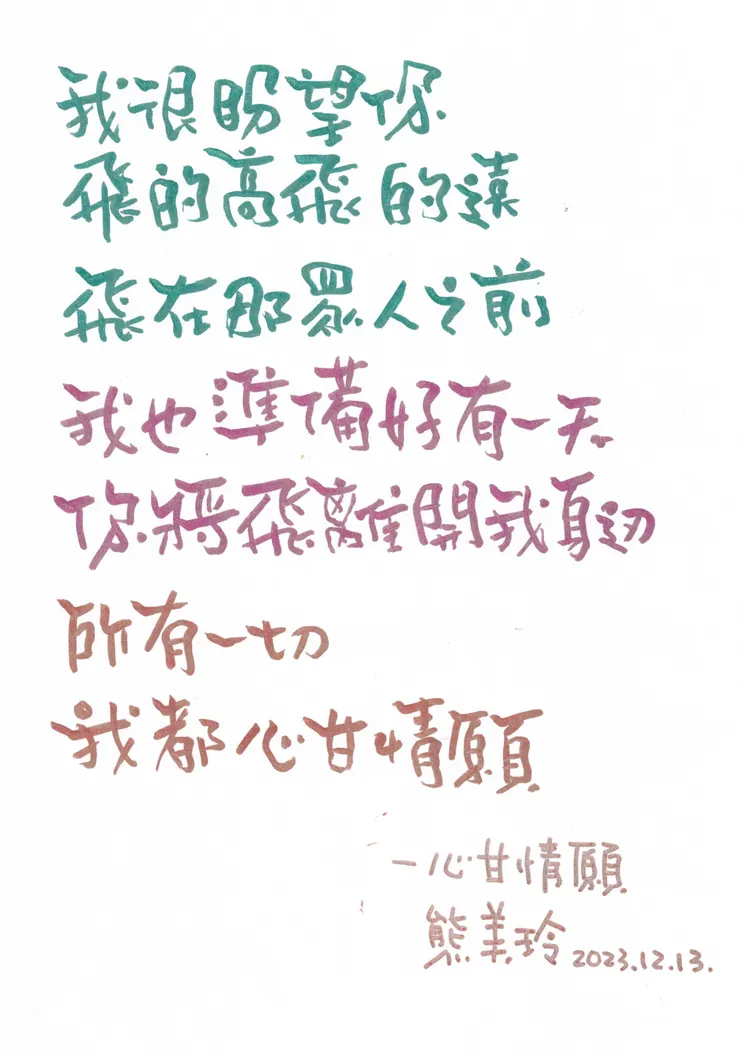 我很盼望你
飛的高飛的遠
飛在那眾人之前
我也準備好有一天
你將飛離開我身边
所有一切
我都心甘情願
—心甘情願
熊美玲 2023.12.13.